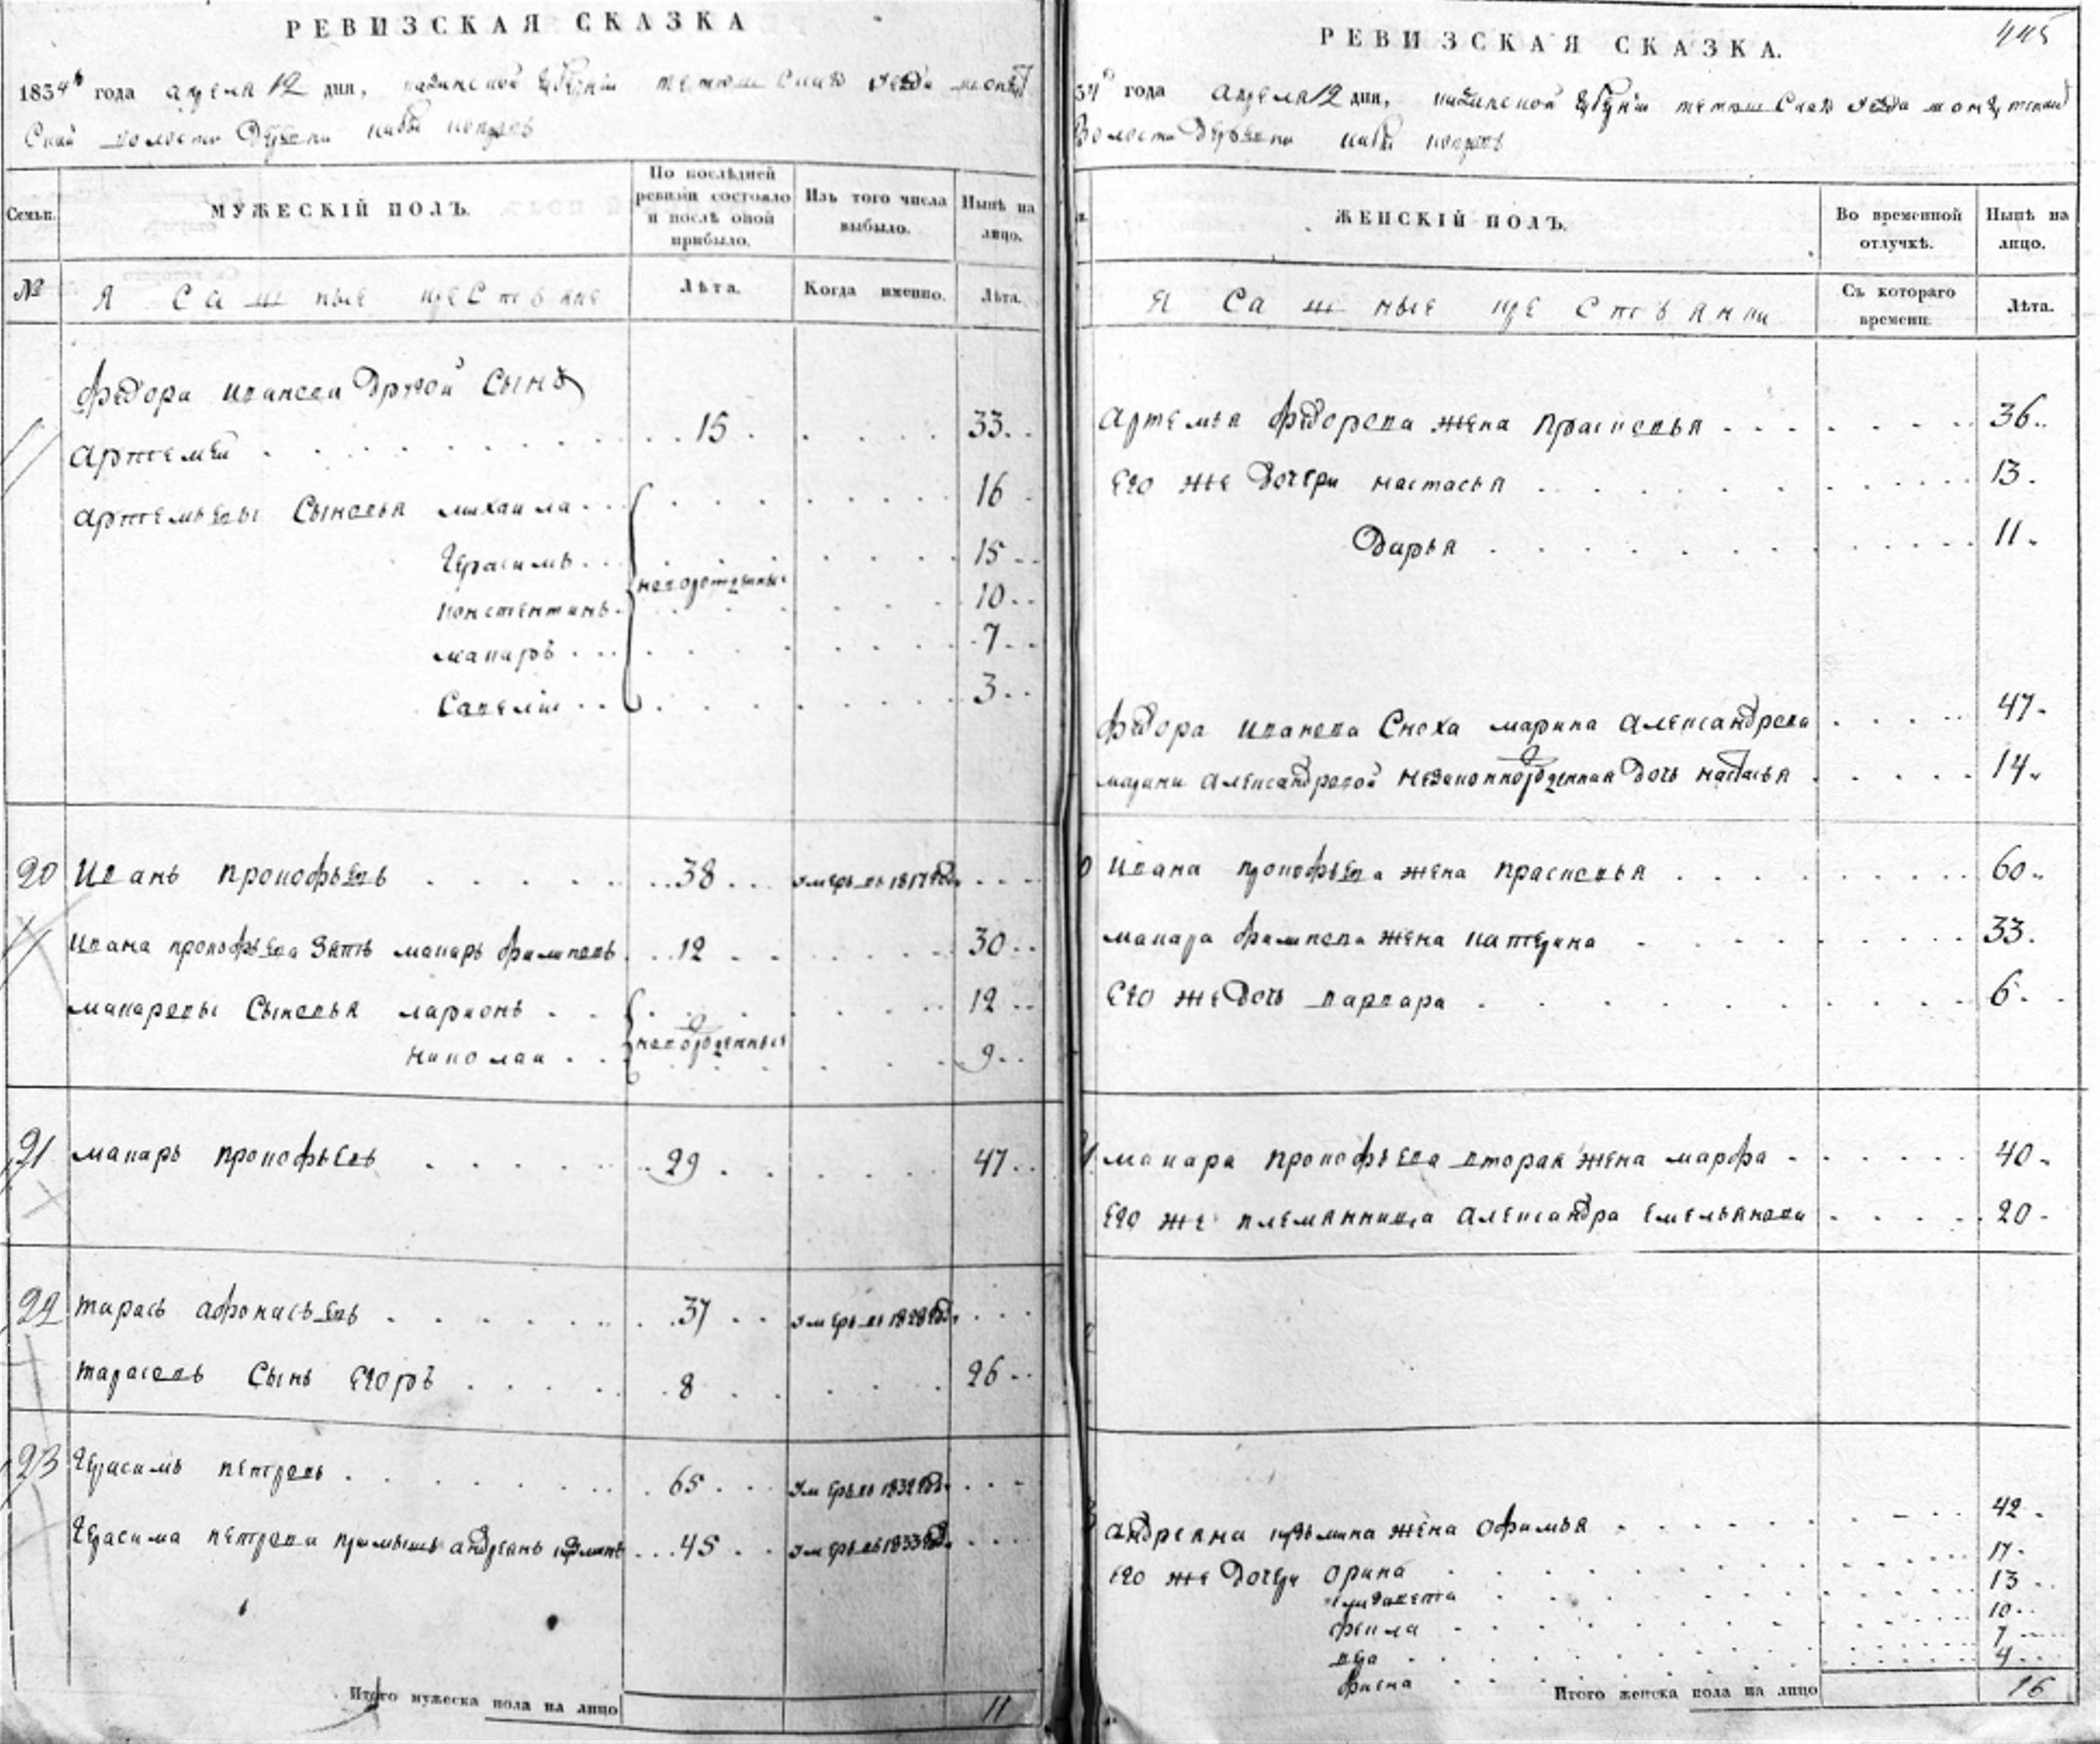 РЕВИЗСКАЯ СКАЗКА
1834го года апреля 12 дня, казанской губерніи тетюшскаго уезда монастыр
ской волости деревни
Семьи.
МУЖЕСКІЙ ПОЛЪ.
По послѣдней ревизіи состояло и послѣ оной прибыло.
Изъ того числа выбыло.
Нынѣ на лицо.
№
Ясашные крестьяне
Лѣта.
Когда именно.
Лѣта.
Федора иванова другой сынъ
артемеи 15 33
артемьевы сыновья михаила 16
герасимъ 15
новорожденные
констентинъ 10
макаръ 7
савелии 3
20 иванъ прокофьевъ 38 умеръ въ 1817 году
ивана прокофьева зять макаръ филиповъ 12 30
макаровы сыновья ларионъ 12
новорожденныя
николаи 9
21 макаръ прокофьевъ 29 47
22 тарасъ афонасьевъ 37 умеръ въ 1828 году
тарасовъ сынъ егоръ 8 26
23 герасимъ петровъ 65 умеръ въ 1832 году
герасима петрова примышъ андреянъ кузминъ 45 умеръ въ 1833 году
Итого мужеска пола на лицо 11
РЕВИЗСКАЯ СКАЗКА.
445
34го года апреля 12 дня, казанской губерніи тетюшскаго уезда
волости деревни
ЖЕНСКІЙ ПОЛЪ.
Во временной отлучкѣ.
Нынѣ на лицо.
Ясашные крестьянки
Съ котораго времени.
Лѣта.
артемья федорова жена прасковья 36
его же дочери настасья 13
дарья 11
федора иванова сноха марина александрова 47
марины александровой незаконнорожденная дочь настасья 14
ивана прокофьева жена прасковья 60
макара филипова жена катерина 33
его же дочь варвара 6
макара прокофьева вторая жена марфа 40
его же племянница александра емельянова 20
андреяна кузьмина жена офимья 42
его же дочери орина 17
13
фекла 10
7
4
Итого женска пола на лицо 16